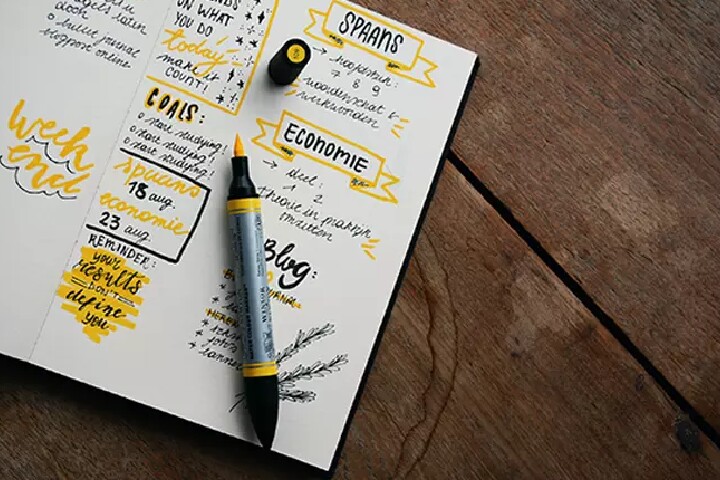 doch
bullet journal
blogpost online
week
end
ON WHAT
YOU DO
today
make it
COUNT!
GOALS:
o start studying!
o start studying!
o start studying!
spaans
18 aug.
economie
23 aug
REMINDER:
your
results
DON'T
define
you
SPAANS
→ hoofdstuk:
7 8 9
woordenschat &
werkwoorden
ECONOMIE
→ deel:
1 2
theorie in mapje
Blog: